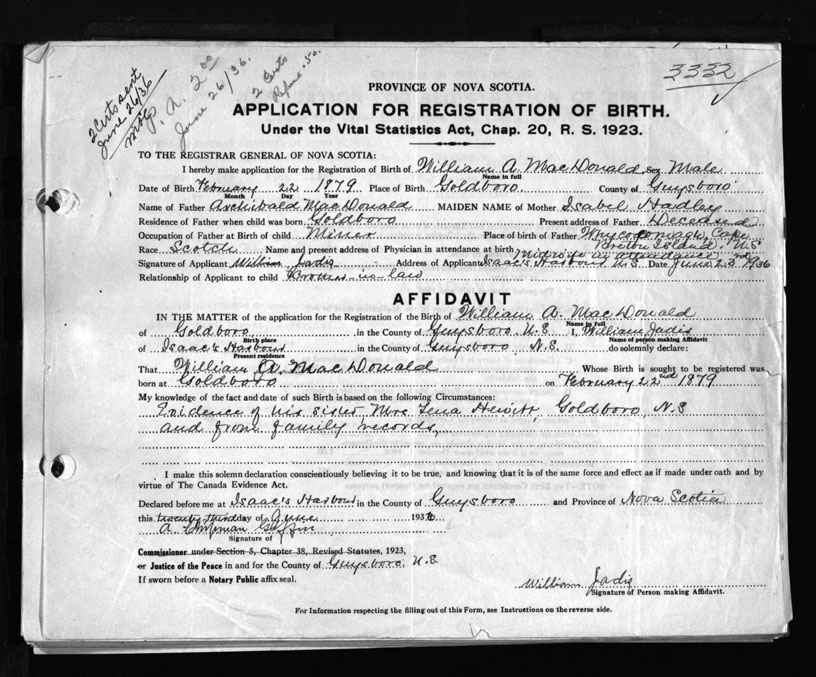 3332
2 Certs sent
June 26/36
P.A. 2.00
June 26/36.
2 Certs
.50.
PROVINCE OF NOVA SCOTIA.
APPLICATION FOR REGISTRATION OF BIRTH.
Under the Vital Statistics Act, Chap. 20, R. S. 1923.
TO THE REGISTRAR GENERAL OF NOVA SCOTIA:
I hereby make application for the Registration of Birth of William A. MacDonald Sex Male
Name in full
Date of Birth February 22 1879 Place of Birth Goldboro. County of Guysboro.
Month Day Year
Name of Father Archibald MacDonald MAIDEN NAME of Mother Isabel Hadley
Residence of Father when child was born Goldboro Present address of Father Deceased
Occupation of Father at Birth of child Miner Place of birth of Father Whycocomagh, Cape
Breton Island, N.S
Race Scotch Name and present address of Physician in attendance at birth Midwife in attendance
Signature of Applicant William Jadis Address of Applicant Isaac's Harbour N.S Date June 23rd 1936
Relationship of Applicant to child Brother-in-law
AFFIDAVIT
IN THE MATTER of the application for the Registration of the Birth of William A. MacDonald
Name in full
of Goldboro in the County of Guysboro N.S I, William Jadis
Birth place Name of person making Affidavit
of Isaac's Harbour in the County of Guysboro, N.S. do solemnly declare:
Present residence
That William A. MacDonald Whose Birth is sought to be registered was
born at Goldboro on February 22nd 1879
My knowledge of the fact and date of such Birth is based on the following Circumstances:
Evidence of his sister Mrs Lena Hewitt, Goldboro, N.S
and from family records,
I make this solemn declaration conscientiously believing it to be true, and knowing that it is of the same force and effect as if made under oath and by
virtue of The Canada Evidence Act.
Declared before me at Isaac's Harbour in the County of Guysboro and Province of Nova Scotia
this twenty third day of June 1936
A. Chipman Giffin
Signature of
Commissioner under Section 5, Chapter 38, Revised Statutes, 1923,
or Justice of the Peace in and for the County of Guysboro. N.S.
If sworn before a Notary Public affix seal.
William Jadis
Signature of Person making Affidavit.
For Information respecting the filling out of this Form, see Instructions on the reverse side.